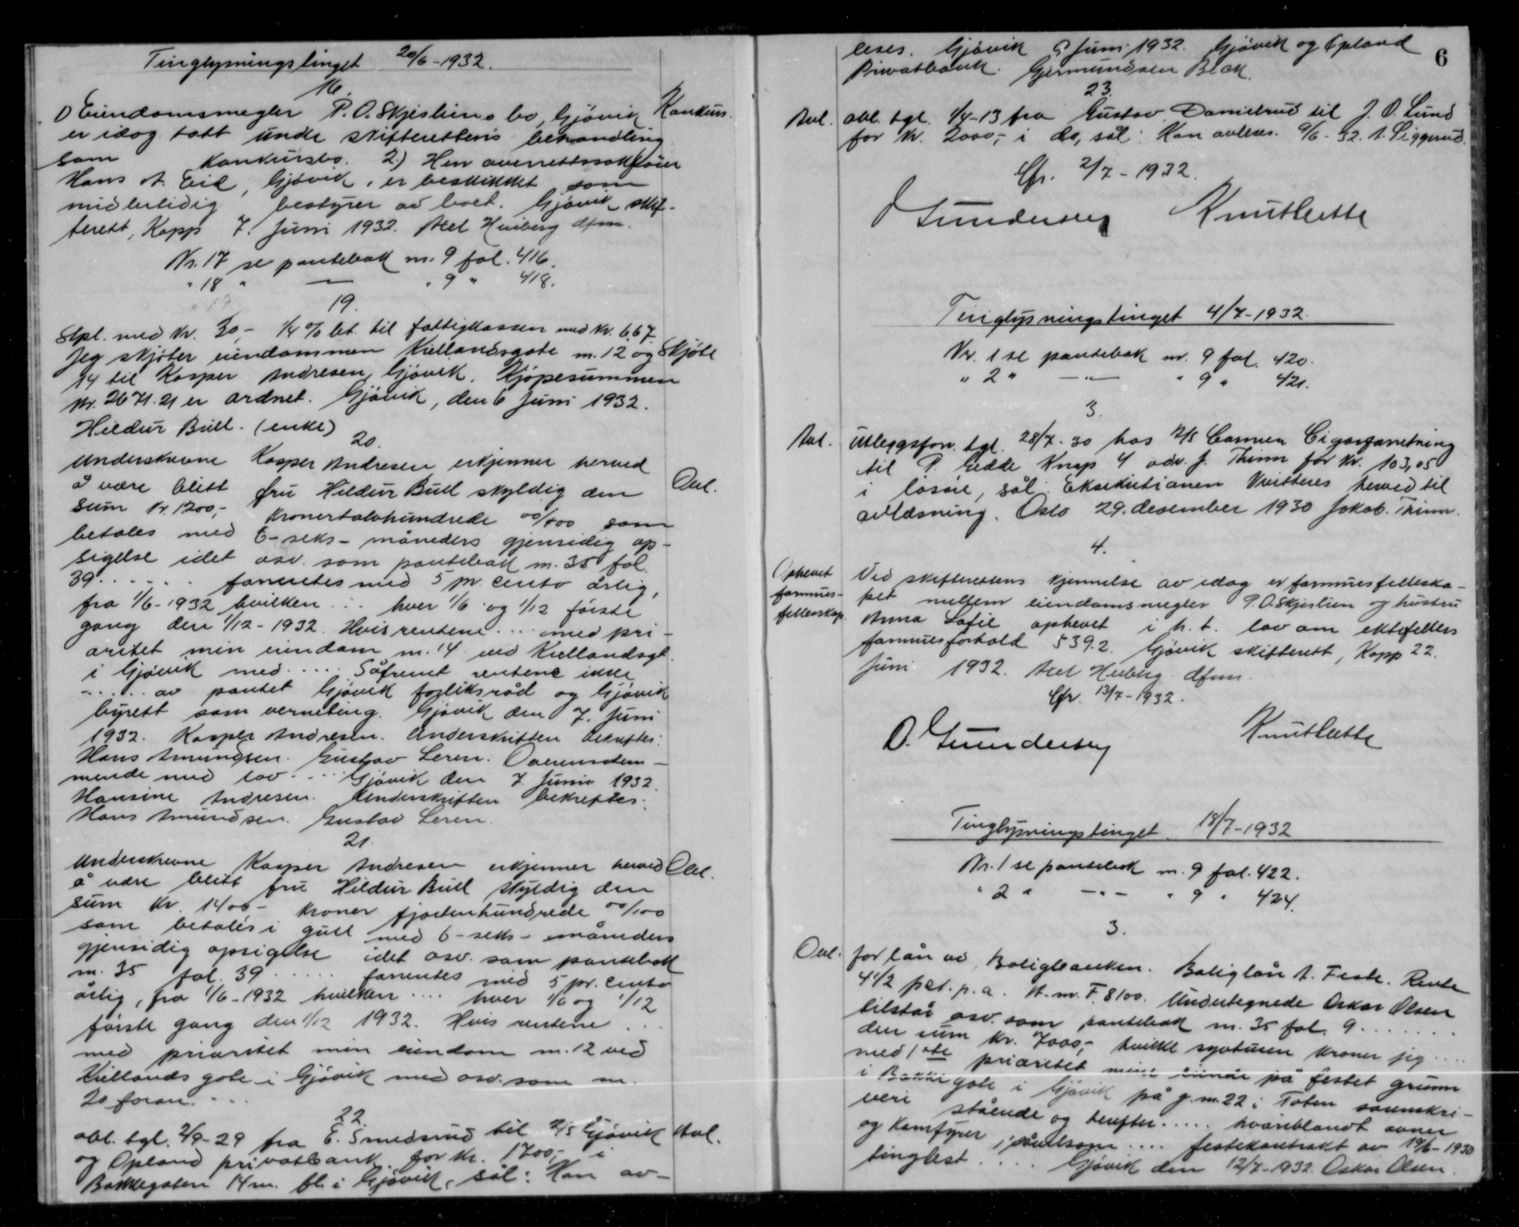 Tinglysningstinget 20/6-1932.
16.
1) Eiendomsmegler P.O. Skjeslien's bo, Gjövik Konkurs.
er idag tatt under skifterettens behandling
som konkursbo. 2.) Herr overrettssakförer
Hans A. Eid, Gjövik, er beskikket som
midlertidig bestyrer av boet. Gjövik skif-
terett, Kapp 7. Juni 1932. Axel Heiberg dfm.
Nr. 17 se pantebok nr. 9 fol. 416.
" 18 " — " 9 " 418.
19.
Stpl. med Kr. 30,- 1/4 % bet. til fattigkassen med Kr. 6.67.
Jeg skjöter eiendommen Kiellandsgate nr. 12 og Skjöte
14 til Kasper Andresen, Gjövik. Kjöpesummen
Kr. 2671.21 er ordnet. Gjövik, den 6 Juni 1932.
Hildur Bull. (enke)
20.
Underskrevne Kasper Andresen erkjenner herved
å være blitt fru Hildur Bull skyldig den Obl.
sum Kr. 1200,- kronertolvhundrede 00/100 som
betales med 6-seks- måneders gjensidig op-
sigelse idet osv. som pantebok nr. 35 fol.
39 ..... forrentes med 5 pr. cento årlig,
fra 1/6-1932 hvilken ... hver 1/6 og 1/12 förste
gang den 1/12-1932. Hvis rentene ... med pri-
oritet min eiendom nr. 14 ved Kiellandsgt.
i Gjövik med .... Såfremt rentene ikke
..... av pantet Gjövik forliksråd og Gjövik
byrett som verneting. Gjövik den 7. Juni
1932. Kasper Andresen. Underskriften bekreftes:
Hans Amundsen. Gustav Leren. Overensstem-
mende med lov ... Gjövik den 7 Juni 1932.
Hansine Andresen. Underskriften bekreftes:
Hans Amundsen. Gustav Leren.
21.
Underskrevne Kasper Andresen erkjenner herved Obl.
å være blitt fru Hildur Bull skyldig den
sum Kr. 1400- kroner fjortenhundrede 00/100
som betales i gull med 6-seks- måneders
gjensidig opsigelse idet osv. som pantebok
nr. 35 fol. 39 ..... forrentes med 5 pr. cento
årlig, fra 1/6-1932 hvilken .... hver 1/6 og 1/12
förste gang den 1/12 1932. Hvis rentene ...
med prioritet min eiendom nr. 12 ved
Kiellands gate i Gjövik med osv. som nr.
20 foran. ...
22.
obl. tgl. 2/9-29 fra E. Smedsrud til A/S Gjövik Avl.
og Opland privatbank for Kr. 1700,- i
Bakkegaten 14 m. fl. i Gjövik, sål: Kan av-
6
leses. Gjövik 9 Juni 1932. Gjövik og Opland
Privatbank. Germundsen Beck.
23.
Avl. obl. tgl. 1/4-13 fra Gustav Danielsrud til J. O. Lund
for Kr. 2000,- i do, sål: Kan avleses. 9/6-32. A. Siggerud.
Cfr. 2/7-1932.
O Gundersen Knut Sætre
Tinglysningstinget 4/7-1932.
Nr. 1 se pantebok nr. 9 fol. 420.
" 2 " —"— " 9 " 421.
3.
Avl. Utleggsforr. tgl. 28/7-30 hos A/S Carmen Cigarforretning
til P. Gedde Knap 4 adv. J. Thinn for Kr. 103,05
i lösöre, sål: Eksekutionen kvitteres herved til
avlæsning. Oslo 29. desember 1930 Jakob Thinn.
4.
Ophevet formues-fellesskap
Ved skifterettens kjennelse av idag er formuesfelleska-
pet mellem eiendomsmegler P.O. Skjeslien og hustru
Anna Sofie ophevet i h. t. lov om ektefellers
formuesforhold § 39.2. Gjövik skifterett, Kapp 22.
Juni 1932. Axel Heiberg dfm.
Cfr. 13/7-1932.
O. Gundersen Knut Sætre
Tinglysningstinget 18/7-1932
Nr. 1 se pantebok nr. 9 fol. 422.
" 2 " —"— " 9 " 424.
3.
Obl. for lån av Boligbanken. Boliglån A. Feste. Rente
4 1/2 pct. p.a. A. nr. F. 8100. Undertegnede Oskar Olsen
tilstår osv. som pantebok nr. 35 fol. 9 .......
den sum Kr. 7000,- hvilke syvtusen kroner jeg ....
med 1ste prioritet på festet grunn
i Bakkegate i Gjövik på g.nr. 22 i Toten
stående og herefter ..... hvoriblandt ovner
og komfyrer, såvelsom .... festekontrakt av 19/6-1930
tinglest .... Gjövik den 12/7-1932. Oskar Olsen.